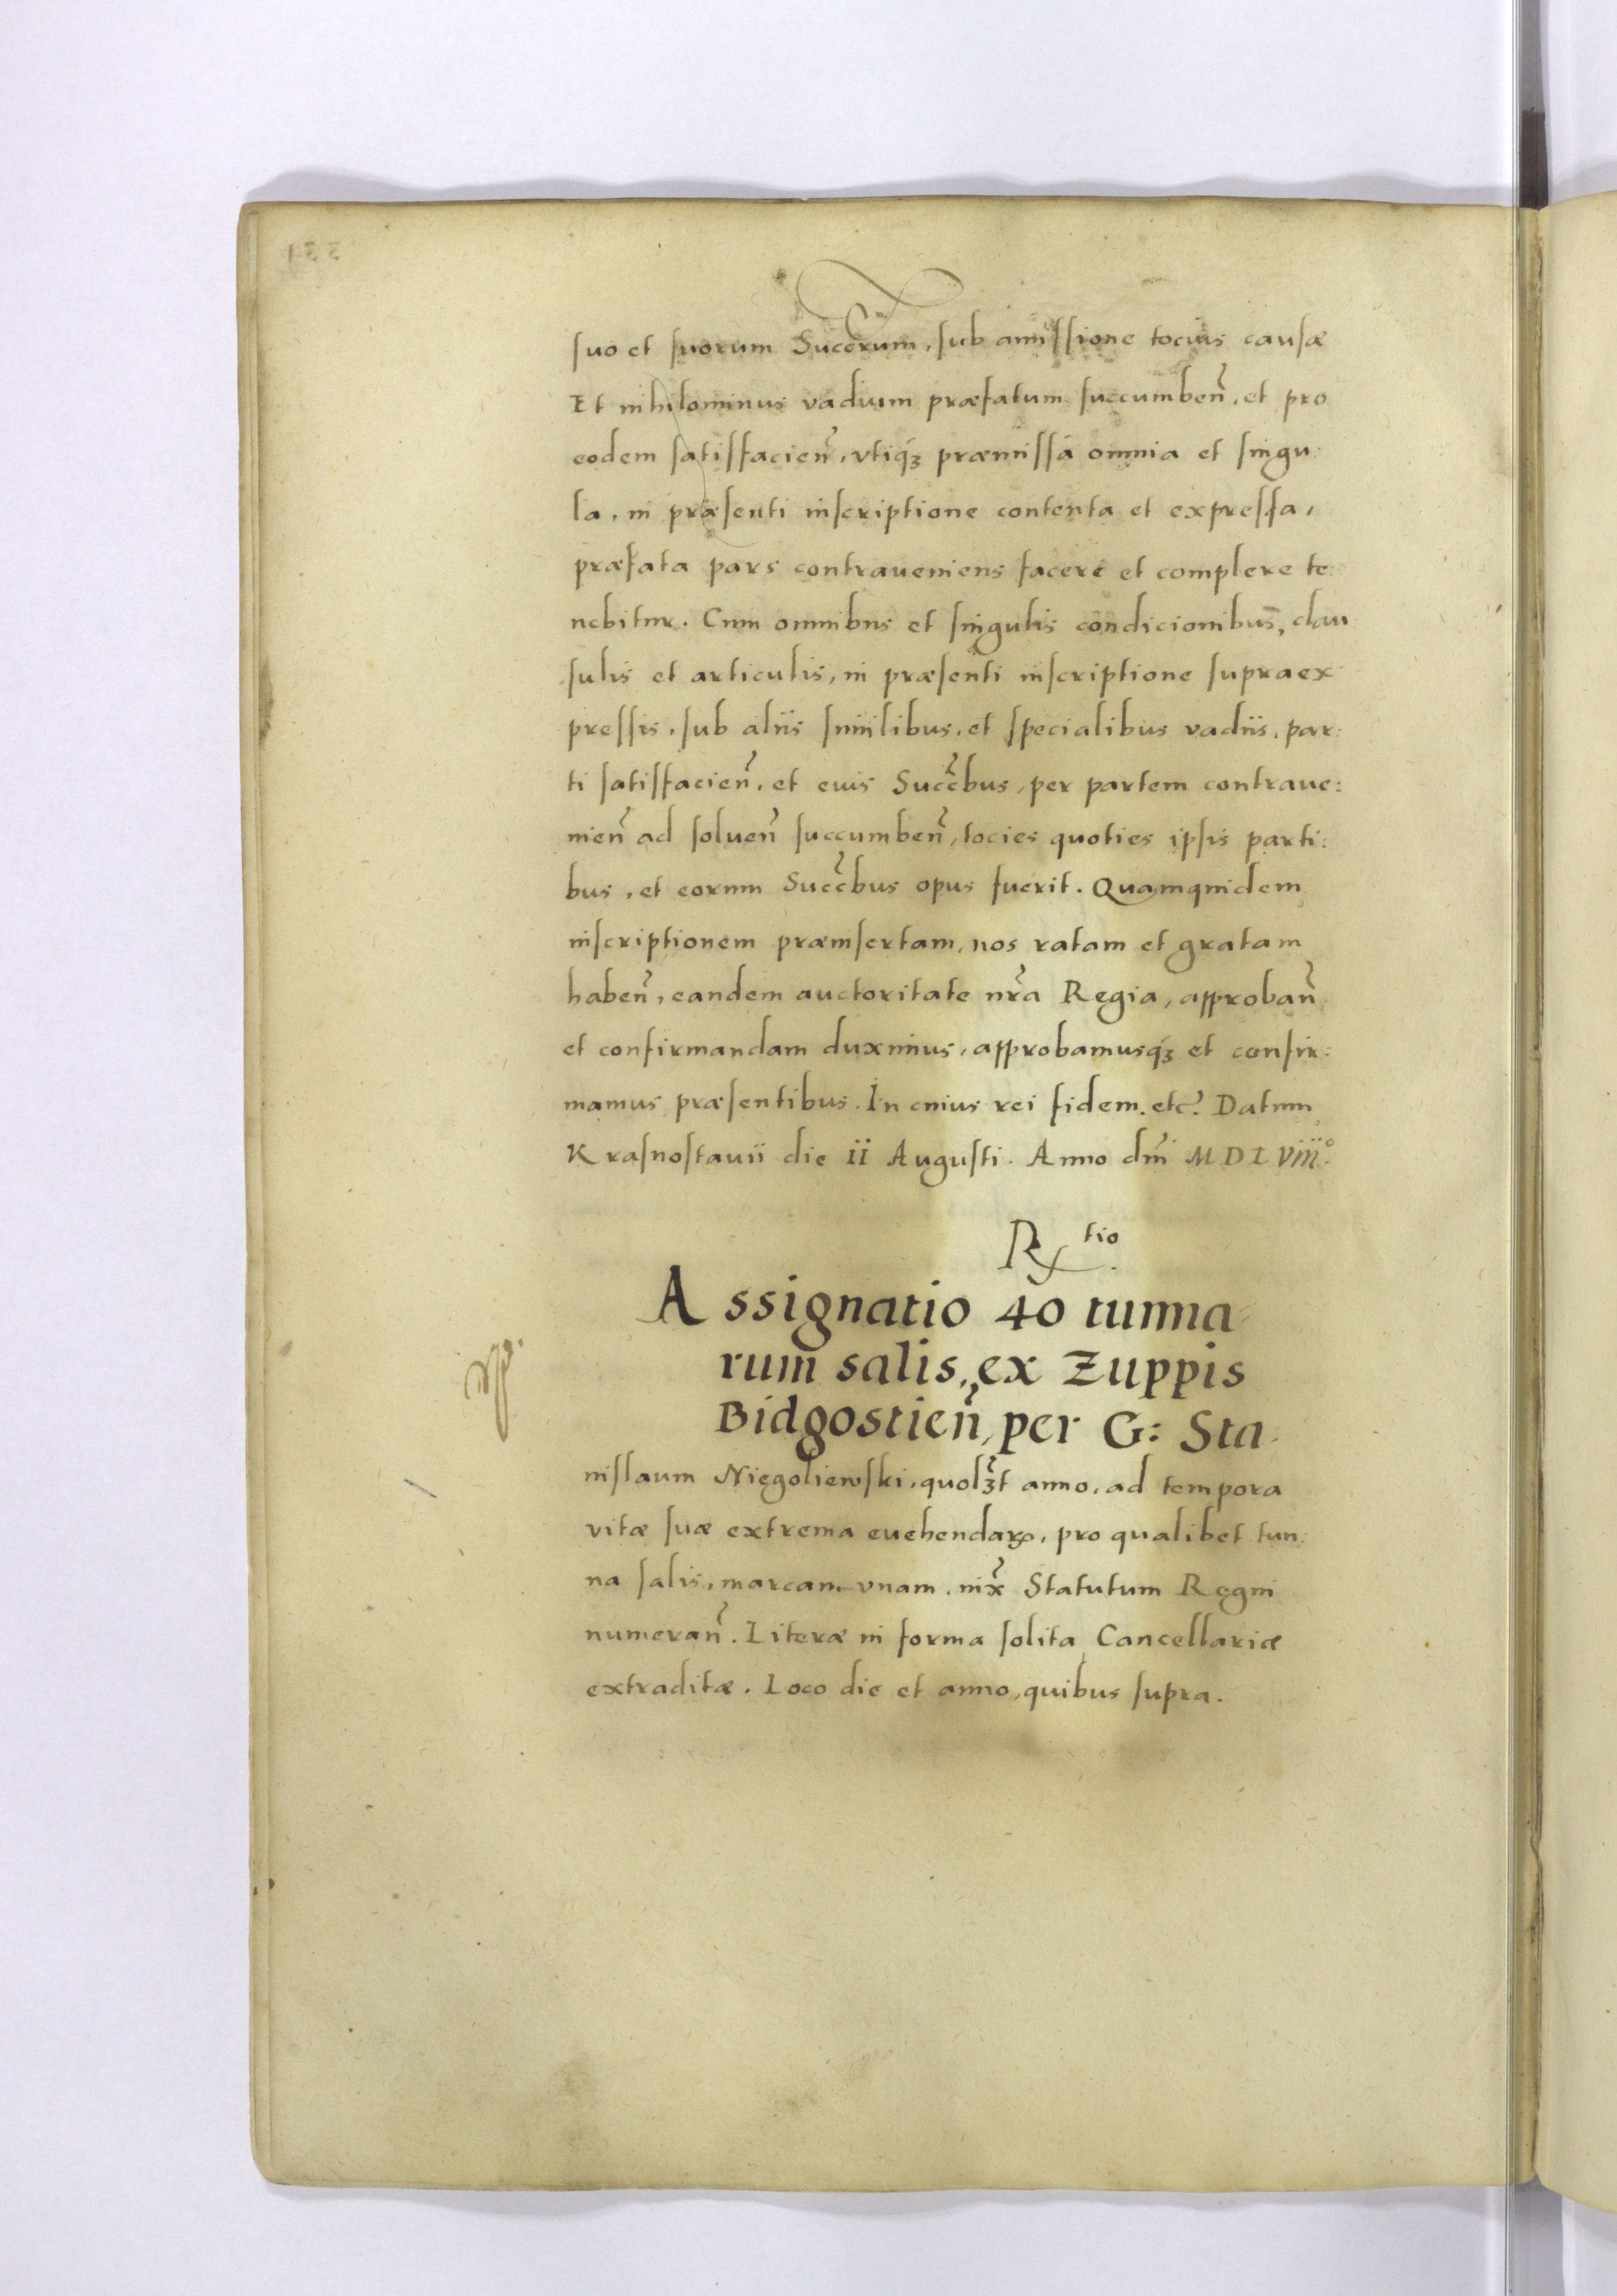 suo et suorum Succ̃rum, sub amissione tocius causæ
Et nihilominus vadium præfatum succumben̄, et pro
eodem satisfacien̄, vtiqꝫ præmissa omnia et singu:
la, in præsenti inscriptione contenta et expressa,
præfata pars contraueniens facere et complere te:
nebitur. Cum omnibus et singulis condicionibus, clau
sulis et articulis, in præsenti inscriptione supraex
pressis, sub aliis similibus, et specialibus vadiis, par:
ti satisfacien̄, et eius Succ̃bus, per partem contraue:
nien̄ ad soluen̄ succumben̄, tocies quoties ipsis parti:
bus, et eorum Succ̃bus opus fuerit. Quamquidem
inscriptionem præinsertam, nos ratam et gratam
haben̄, eandem auctoritate nr̃a Regia, approban̄
et confirmandam duximus, approbamusqꝫ et confir:
mamus præsentibus. In cuius rei fidem. etc̃. Datum
Krasnostauii die II Augusti. Anno dm̃ MDLVIII°
Rtio.
Assignatio 40 tunna
rum salis, ex Zuppis
Bidgostien̄, per G: Sta
nislaum Niegoliewski, quolꝫt anno, ad tempora
vitæ suæ extrema euehendaꝝ, pro qualibet tun:
na salis, marcam vnam, iux̃ Statutum Regni
numeran̄. Literæ in forma solita Cancellariæ
extraditæ. Loco die et anno, quibus supra.